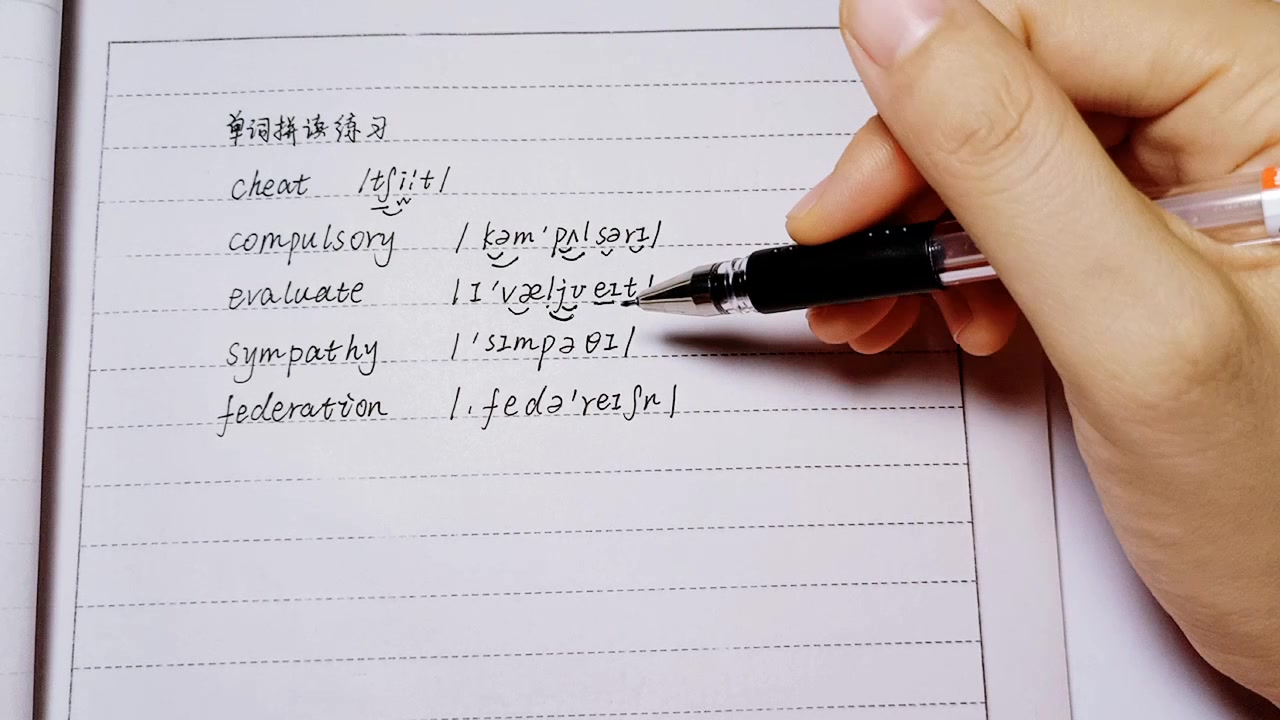 单词拼读练习
cheat /tʃi:t/
compulsory /kəm'pʌlsərɪ/
evaluate /ɪ'væljʊeɪt/
sympathy /'sɪmpəθɪ/
federation /ˌfedə'reɪʃn/